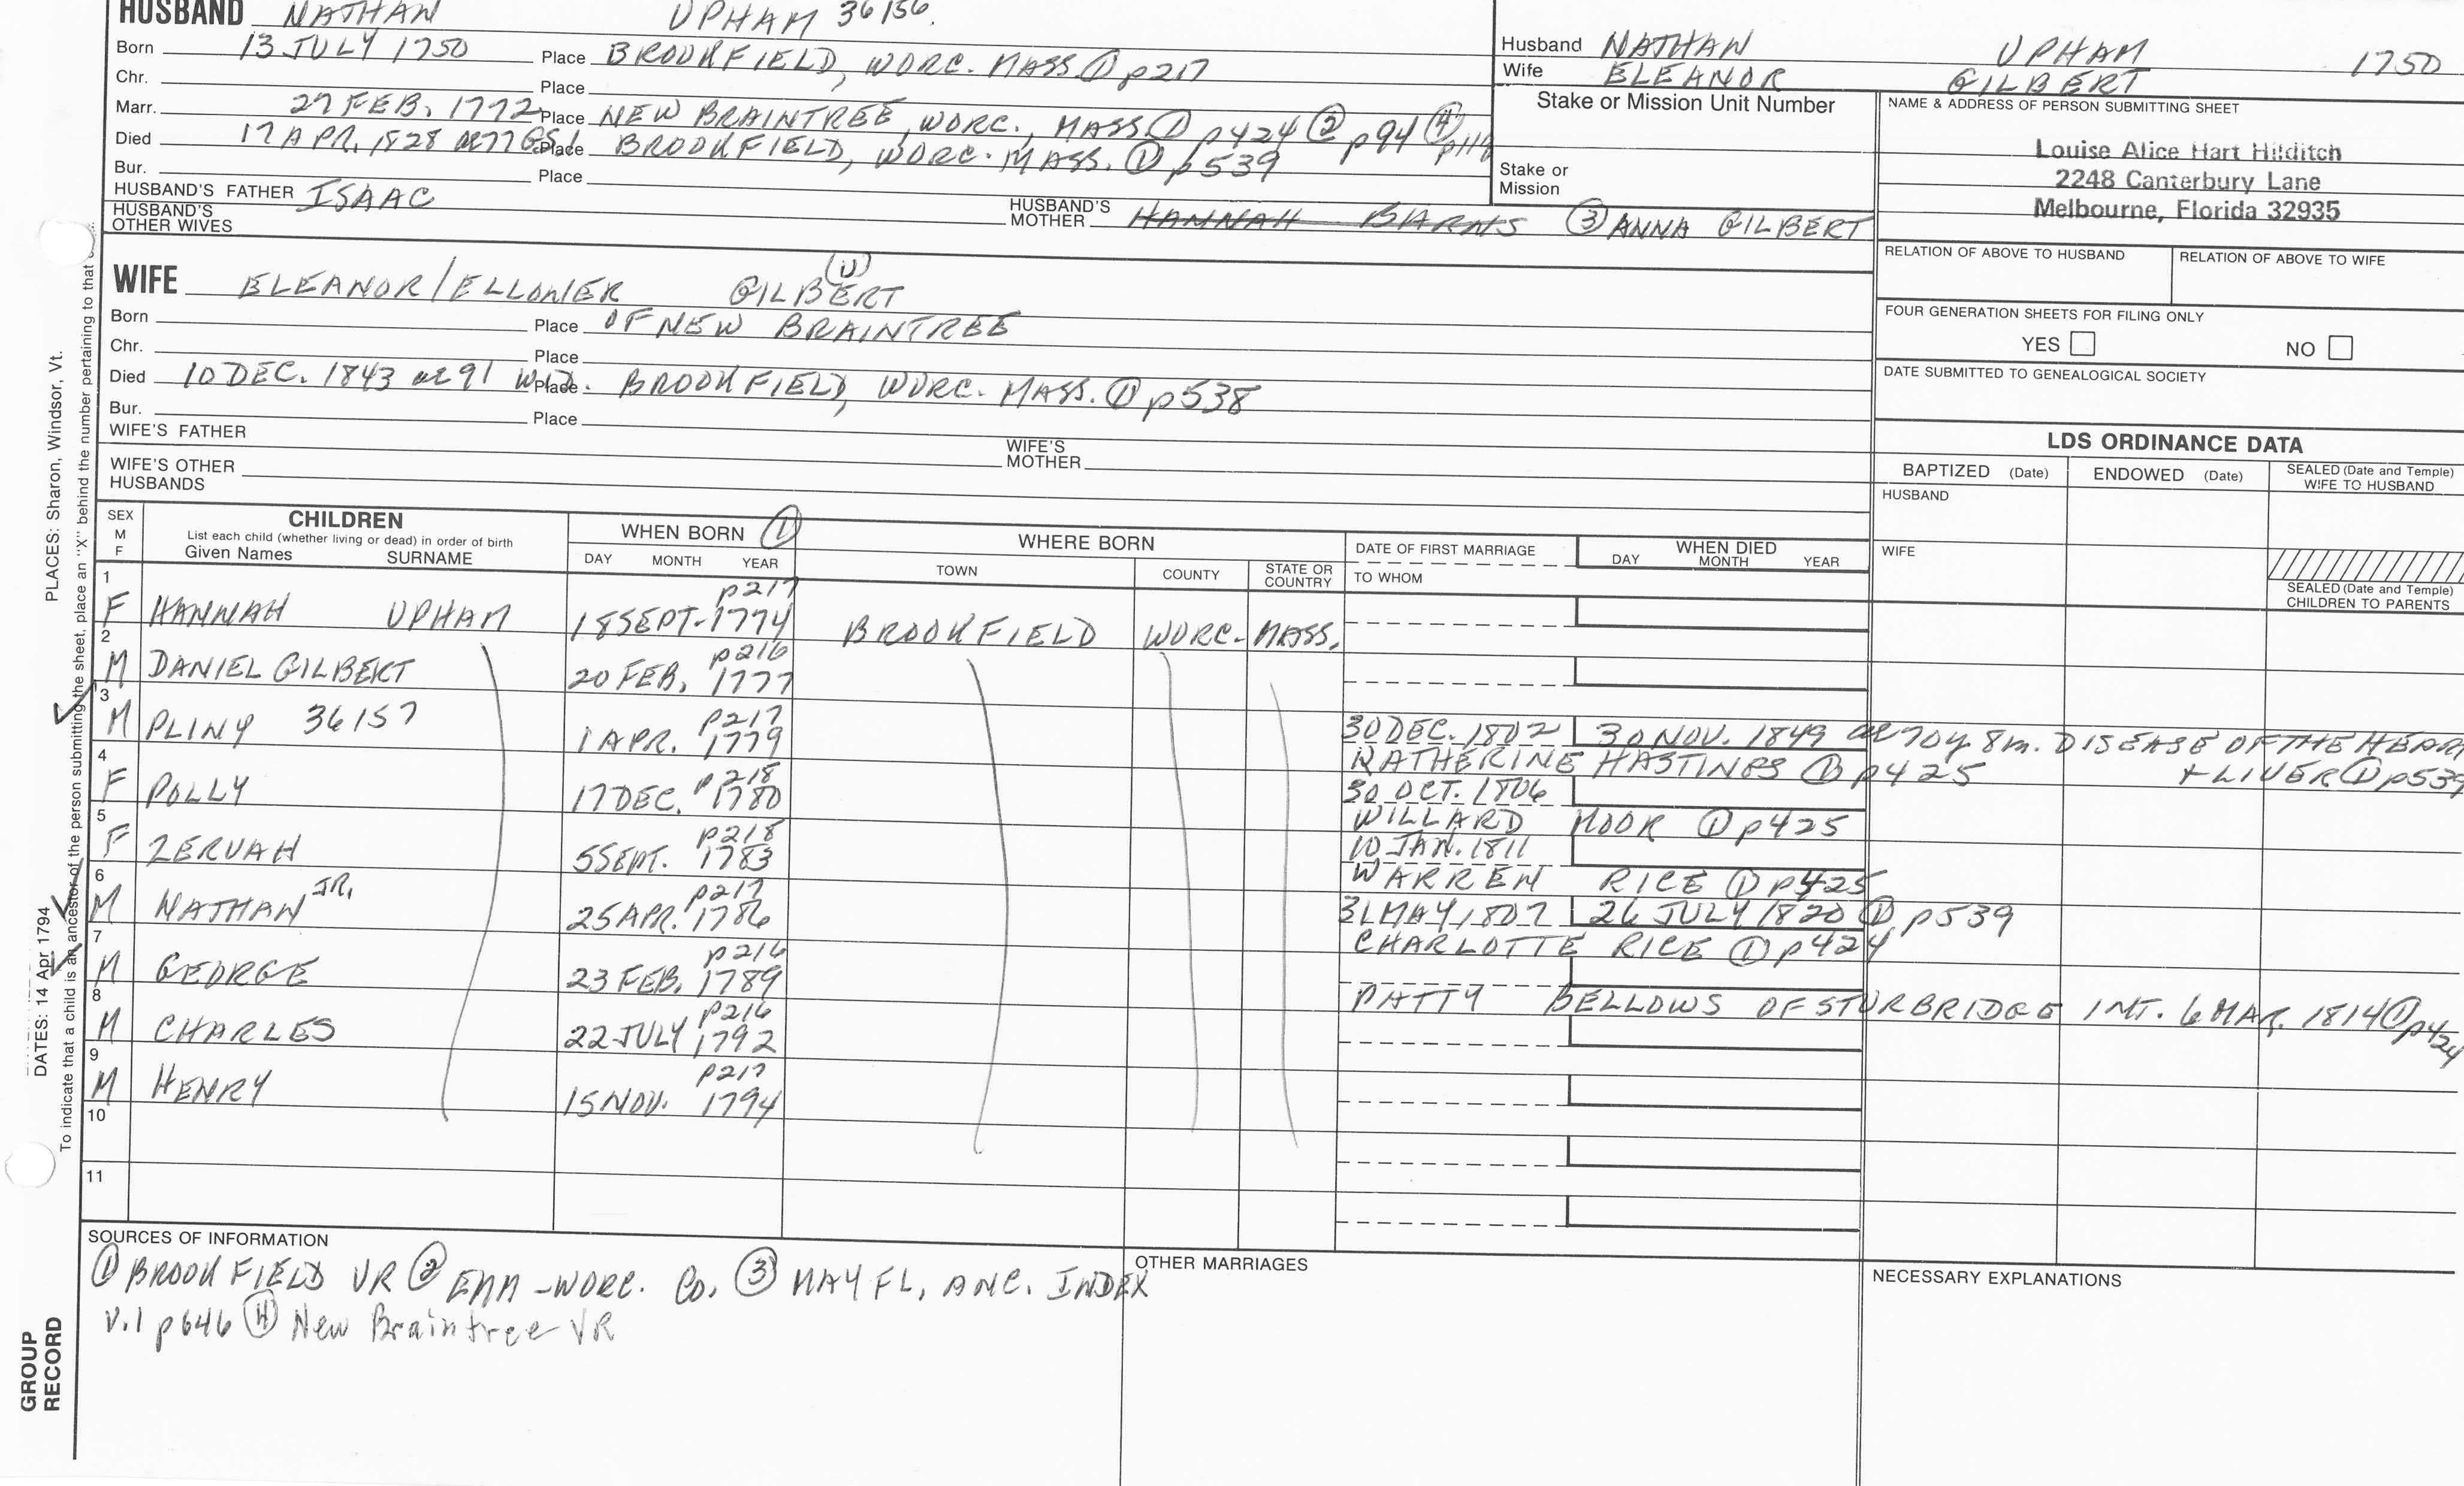 HUSBAND NATHAN UPHAM 36156.
Born 13 JULY 1750 Place BROOKFIELD, WORC. MASS. ① p217
Chr. Place
Marr. 27 FEB. 1772 Place NEW BRAINTREE, WORC., MASS ① p424 ② p94 ④ p116
Died 17 APR. 1828 ae 77 GS1 Place BROOKFIELD, WORC. MASS. ① p539
Bur. Place
HUSBAND'S FATHER ISAAC HUSBAND'S MOTHER HANNAH BARNS ③ ANNA GILBERT
HUSBAND'S OTHER WIVES
Husband NATHAN UPHAM 1750
Wife ELEANOR GILBERT
Stake or Mission Unit Number
Stake or Mission
NAME & ADDRESS OF PERSON SUBMITTING SHEET
Louise Alice Hart Hilditch
2248 Canterbury Lane
Melbourne, Florida 32935
RELATION OF ABOVE TO HUSBAND RELATION OF ABOVE TO WIFE
FOUR GENERATION SHEETS FOR FILING ONLY
YES NO
DATE SUBMITTED TO GENEALOGICAL SOCIETY
WIFE ELEANOR/ELLONER GILBERT (U)
Born Place OF NEW BRAINTREE
Chr. Place
Died 10 DEC. 1843 ae 91 WID. Place BROOKFIELD, WORC. MASS. ① p538
Bur. Place
WIFE'S FATHER WIFE'S MOTHER
WIFE'S OTHER HUSBANDS
LDS ORDINANCE DATA
BAPTIZED (Date) ENDOWED (Date) SEALED (Date and Temple) WIFE TO HUSBAND
HUSBAND
WIFE
SEALED (Date and Temple) CHILDREN TO PARENTS
SEX M F
CHILDREN
List each child (whether living or dead) in order of birth
Given Names SURNAME
WHEN BORN ①
DAY MONTH YEAR
WHERE BORN
TOWN COUNTY STATE OR COUNTRY
DATE OF FIRST MARRIAGE
TO WHOM
WHEN DIED
DAY MONTH YEAR
1 F HANNAH UPHAM 18 SEPT. 1774 p217 BROOKFIELD WORC. MASS.
2 M DANIEL GILBERT 20 FEB. 1777 p216
3 M PLINY 36157 1 APR. 1779 p217 30 DEC. 1802 30 NOV. 1849 ae 70y 8m. DISEASE OF THE HEART
KATHERINE HASTINGS ① p425 + LIVER ① p539
4 F POLLY 17 DEC. 1780 p218 30 OCT. 1806
WILLARD MOOR ① p425
5 F ZERUAH 5 SEPT. 1783 p218 10 JAN. 1811
WARREN RICE ① p425
6 M NATHAN JR. 25 APR. 1786 p217 31 MAY 1807 26 JULY 1820 ① p539
CHARLOTTE RICE ① p424
7 M GEORGE 23 FEB. 1789 p216
PATTY BELLOWS OF STURBRIDGE INT. 6 MAR. 1814 ① p424
8 M CHARLES 22 JULY 1792 p216
9 M HENRY 15 NOV. 1794 p217
10
11
SOURCES OF INFORMATION
① BROOKFIELD VR ② EMM - WORC. Co. ③ MAYFL, ANC. INDEX
V.1 p646 ④ New Braintree VR
OTHER MARRIAGES
NECESSARY EXPLANATIONS
PLACES: Sharon, Windsor, Vt.
DATES: 14 Apr 1794
To indicate that a child is an ancestor of the person submitting the sheet, place an "X" behind the number pertaining to that
GROUP RECORD